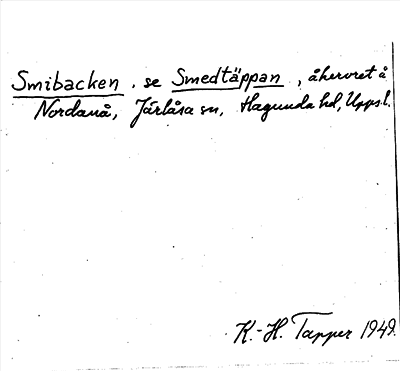 Smibacken . se Smedtäppan , åkernret å
Nordanå, Järlåsa sn, Hagunda hd, Upps.l.
K.-H. Tapper 1949.